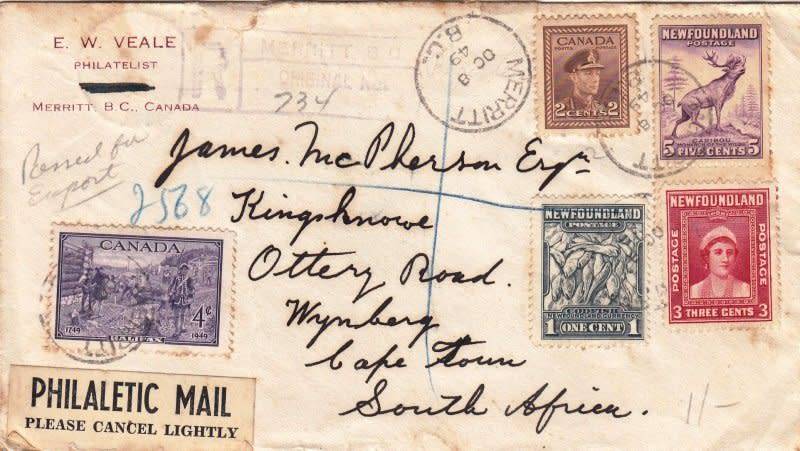 E. W. VEALE
PHILATELIST
MERRITT, B.C., CANADA
MERRITT, B.C.
ORIGINAL No.
734
MERRITT
OC 8
49
B.C.
CANADA
POSTES POSTAGE
2 CENTS 2
NEWFOUNDLAND
POSTAGE
CARIBOU
5 FIVE CENTS 5
Passed for
Export
2568
James. McPherson Esqr
Kingsknowe
Ottery Road.
Wynberg
Cape Town
South Africa.
CANADA
4¢
1749 HALIFAX 1949
NEWFOUNDLAND
POSTAGE
CODFISH
NEWFOUNDLAND CURRENCY
1 ONE CENT 1
NEWFOUNDLAND
POSTAGE
POSTAGE
3 THREE CENTS 3
PHILALETIC MAIL
PLEASE CANCEL LIGHTLY
1/-